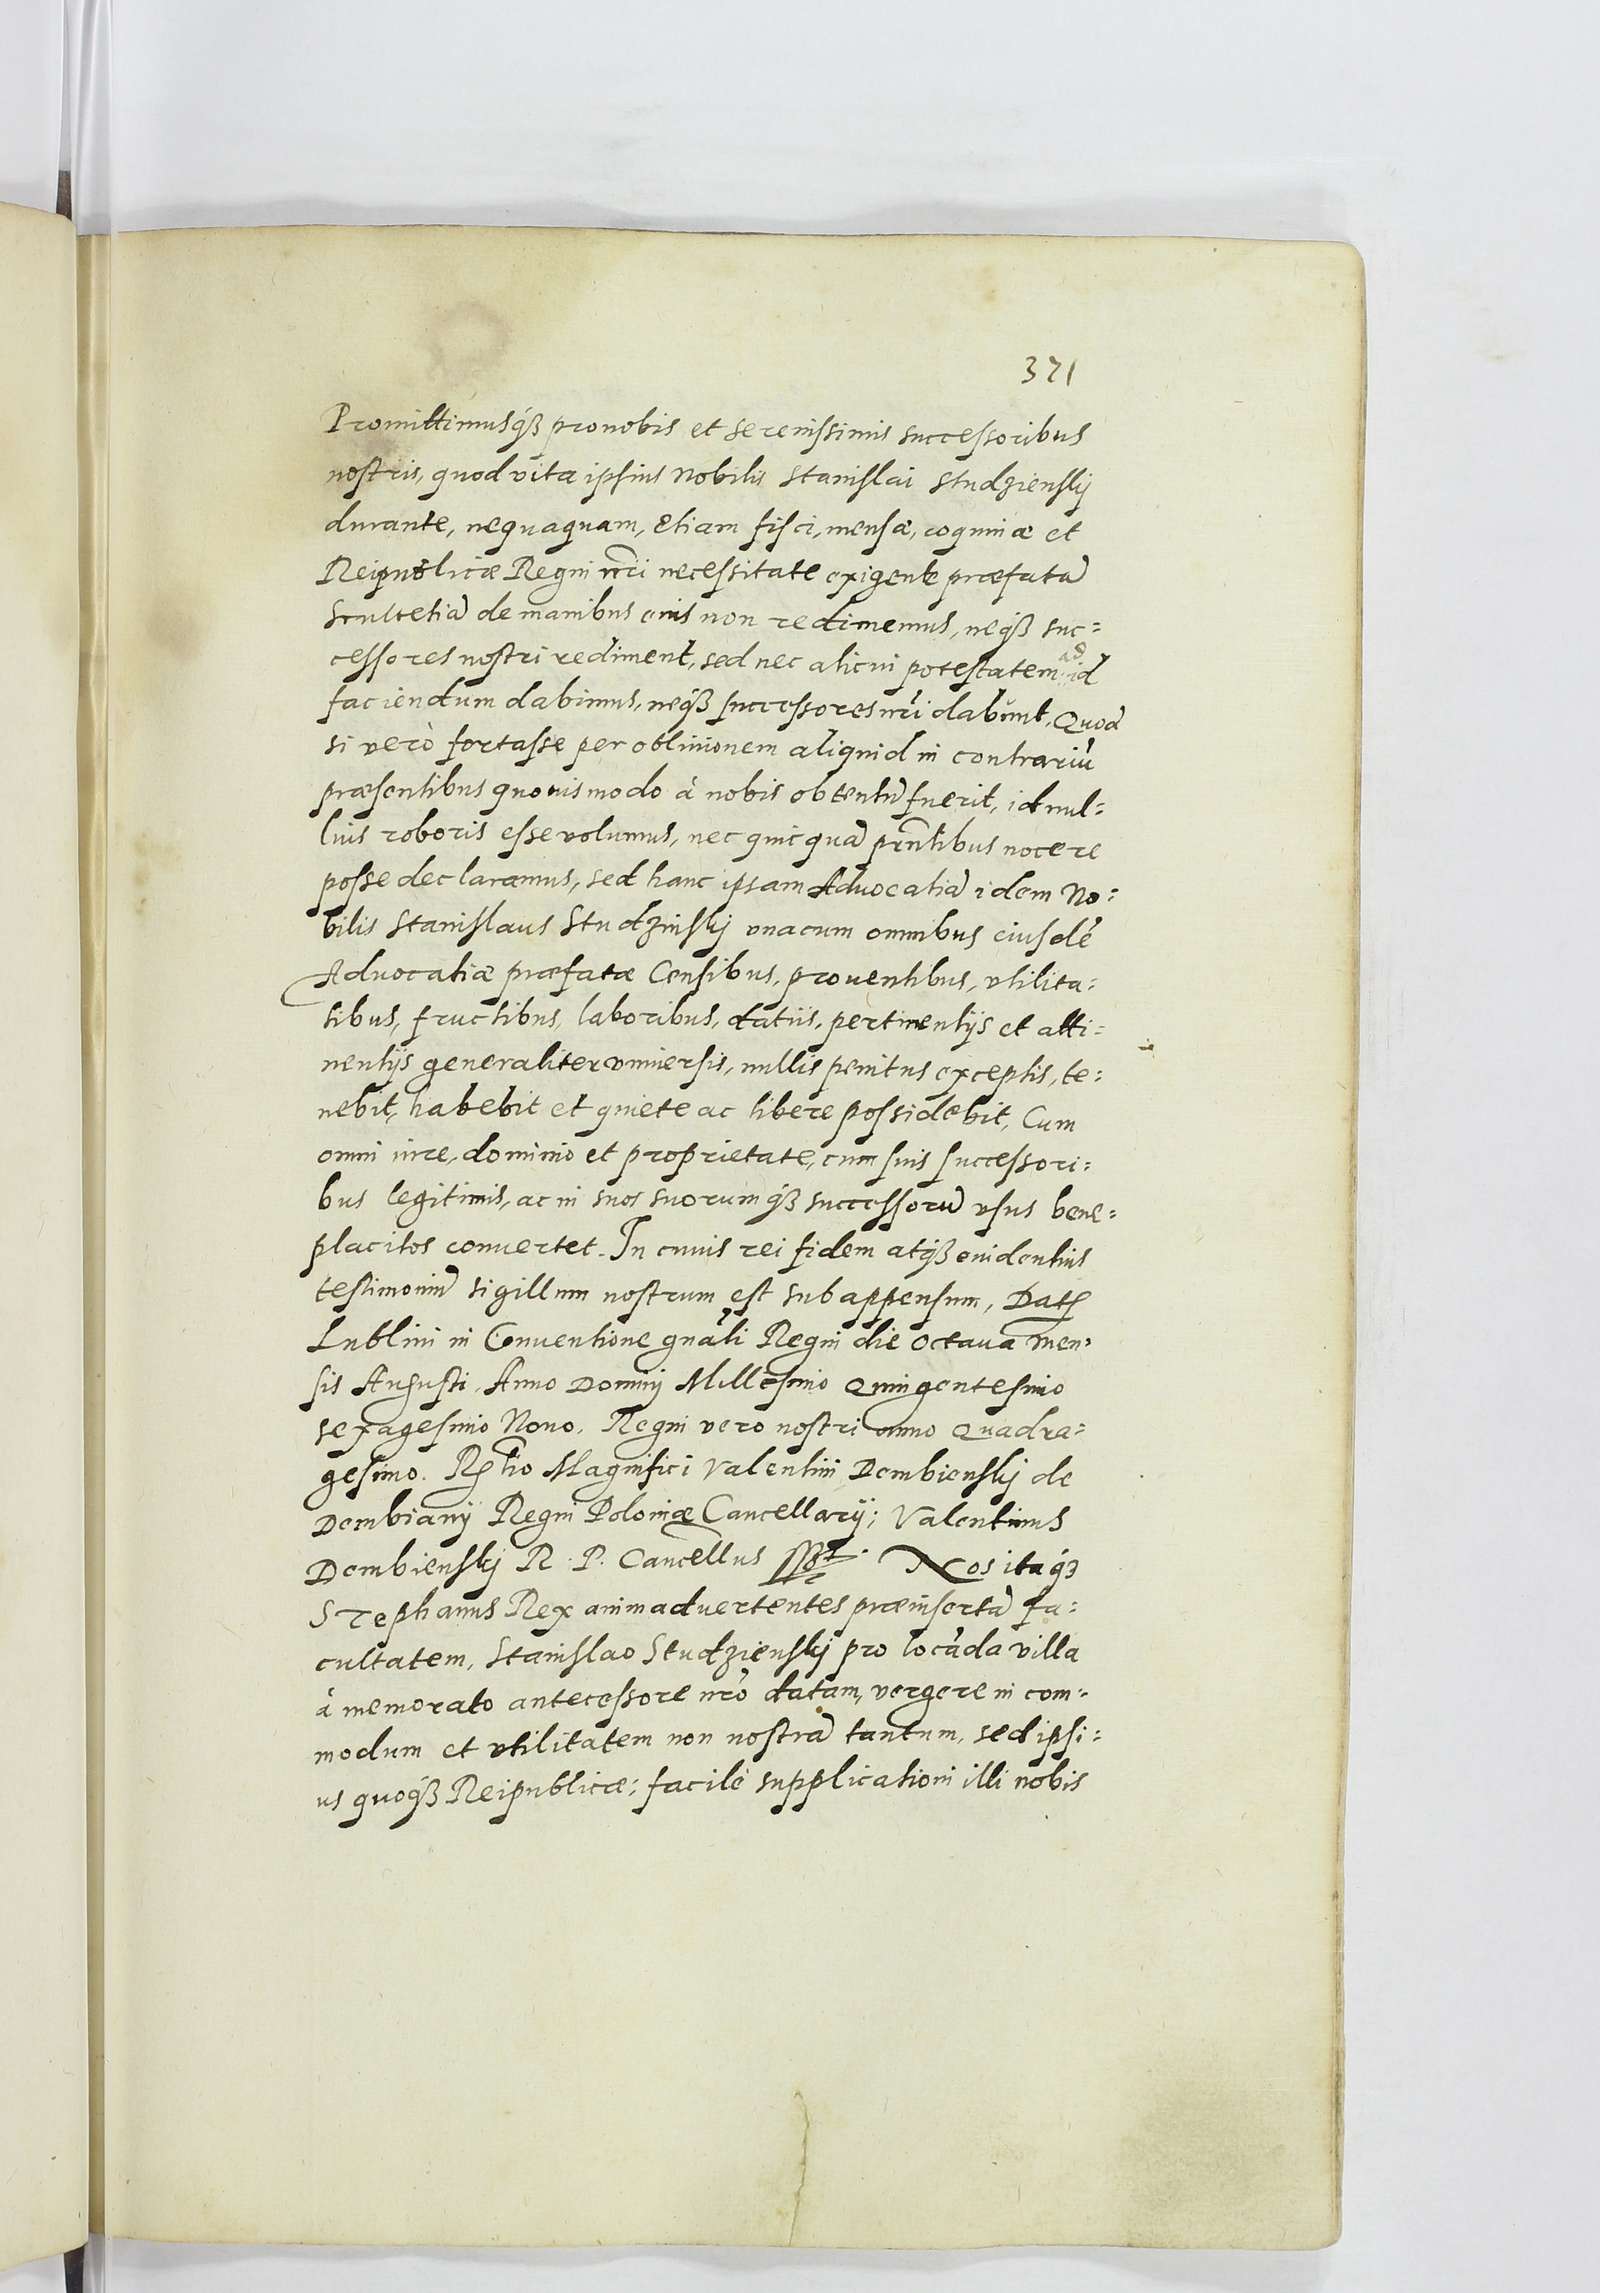 371
Promittimusq́ꝫ pro nobis et serenissimis successoribus
nostris, quod vita ipsius Nobilis Stanislai Studzienskij
durante, nequaquam, Etiam fisci, mensæ, coquinæ et
Reipublicæ Regni nr̃i necessitate exigente præfatã
Scultetiã de manibus eius non redimemus, neq́ꝫ suc=
cessores nostri rediment, sed nec alicui potestatem ad id
faciendum dabimus, neq́ꝫ successores nr̃i dabunt. Quod
si verò fortasse per obliuionem aliquid in contrariũ
præsentibus quouismodo à nobis obtentũ fuerit, id nul=
lius roboris esse volumus, nec quicquã pñtibus nocere
posse declaramus, sed hanc ipsam Aduocatiã idem No=
bilis Stanislaus Studzinskij vnacum omnibus eiusdẽ
Aduocatiæ præfatæ Censibus, prouentibus, vtilita=
tibus, fructibus, laboribus, datiis, pertinentijs et atti=
nentijs generaliter vniuersis, nullis penitus exceptis, te=
nebit, habebit et quiete ac libere possidebit, Cum
omni iure, dominio et proprietate, cum suis successori=
bus legitimis, ac in suos suorumq́ꝫ successorũ vsus bene=
placitos conuertet. In cuius rei fidem atq́ꝫ euidentius
testimoniũ sigillum nostrum est subappensum, Datꝭ
Lublini in Conuentione gnãli Regni die Octaua men=
sis Augusti, Anno Dominij Millesimo Quingentesimo
sexagesimo Nono. Regni vero nostri anno Quadra=
gesimo. Rꝭtio Magnifici Valentini Dembienskij de
Dembianij Regni Poloniæ Cancellarij; Valentinus
Dembienskij R. P. Cancellus sspt. Nos itaqꝫ
Stephanus Rex animaduertentes præinsertã fa=
cultatem, Stanislao Studzienskij pro locãda villa
à memorato antecessore nr̃o datam, vergere in com=
modum et vtilitatem non nostrã tantum, sed ipsi=
us quoq́ꝫ Reipublicæ; facilè supplicationi illi nobis